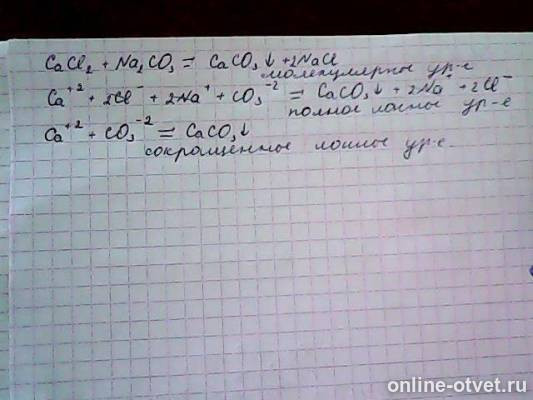 CaCl₂ + Na₂CO₃ = CaCO₃↓ + 2NaCl
молекулярное ур-е
Ca⁺² + 2Cl⁻ + 2Na⁺ + CO₃⁻² = CaCO₃↓ + 2Na⁺ + 2Cl⁻
полное ионное ур-е
Ca⁺² + CO₃⁻² = CaCO₃↓
сокращенное ионное ур-е.
online-otvet.ru